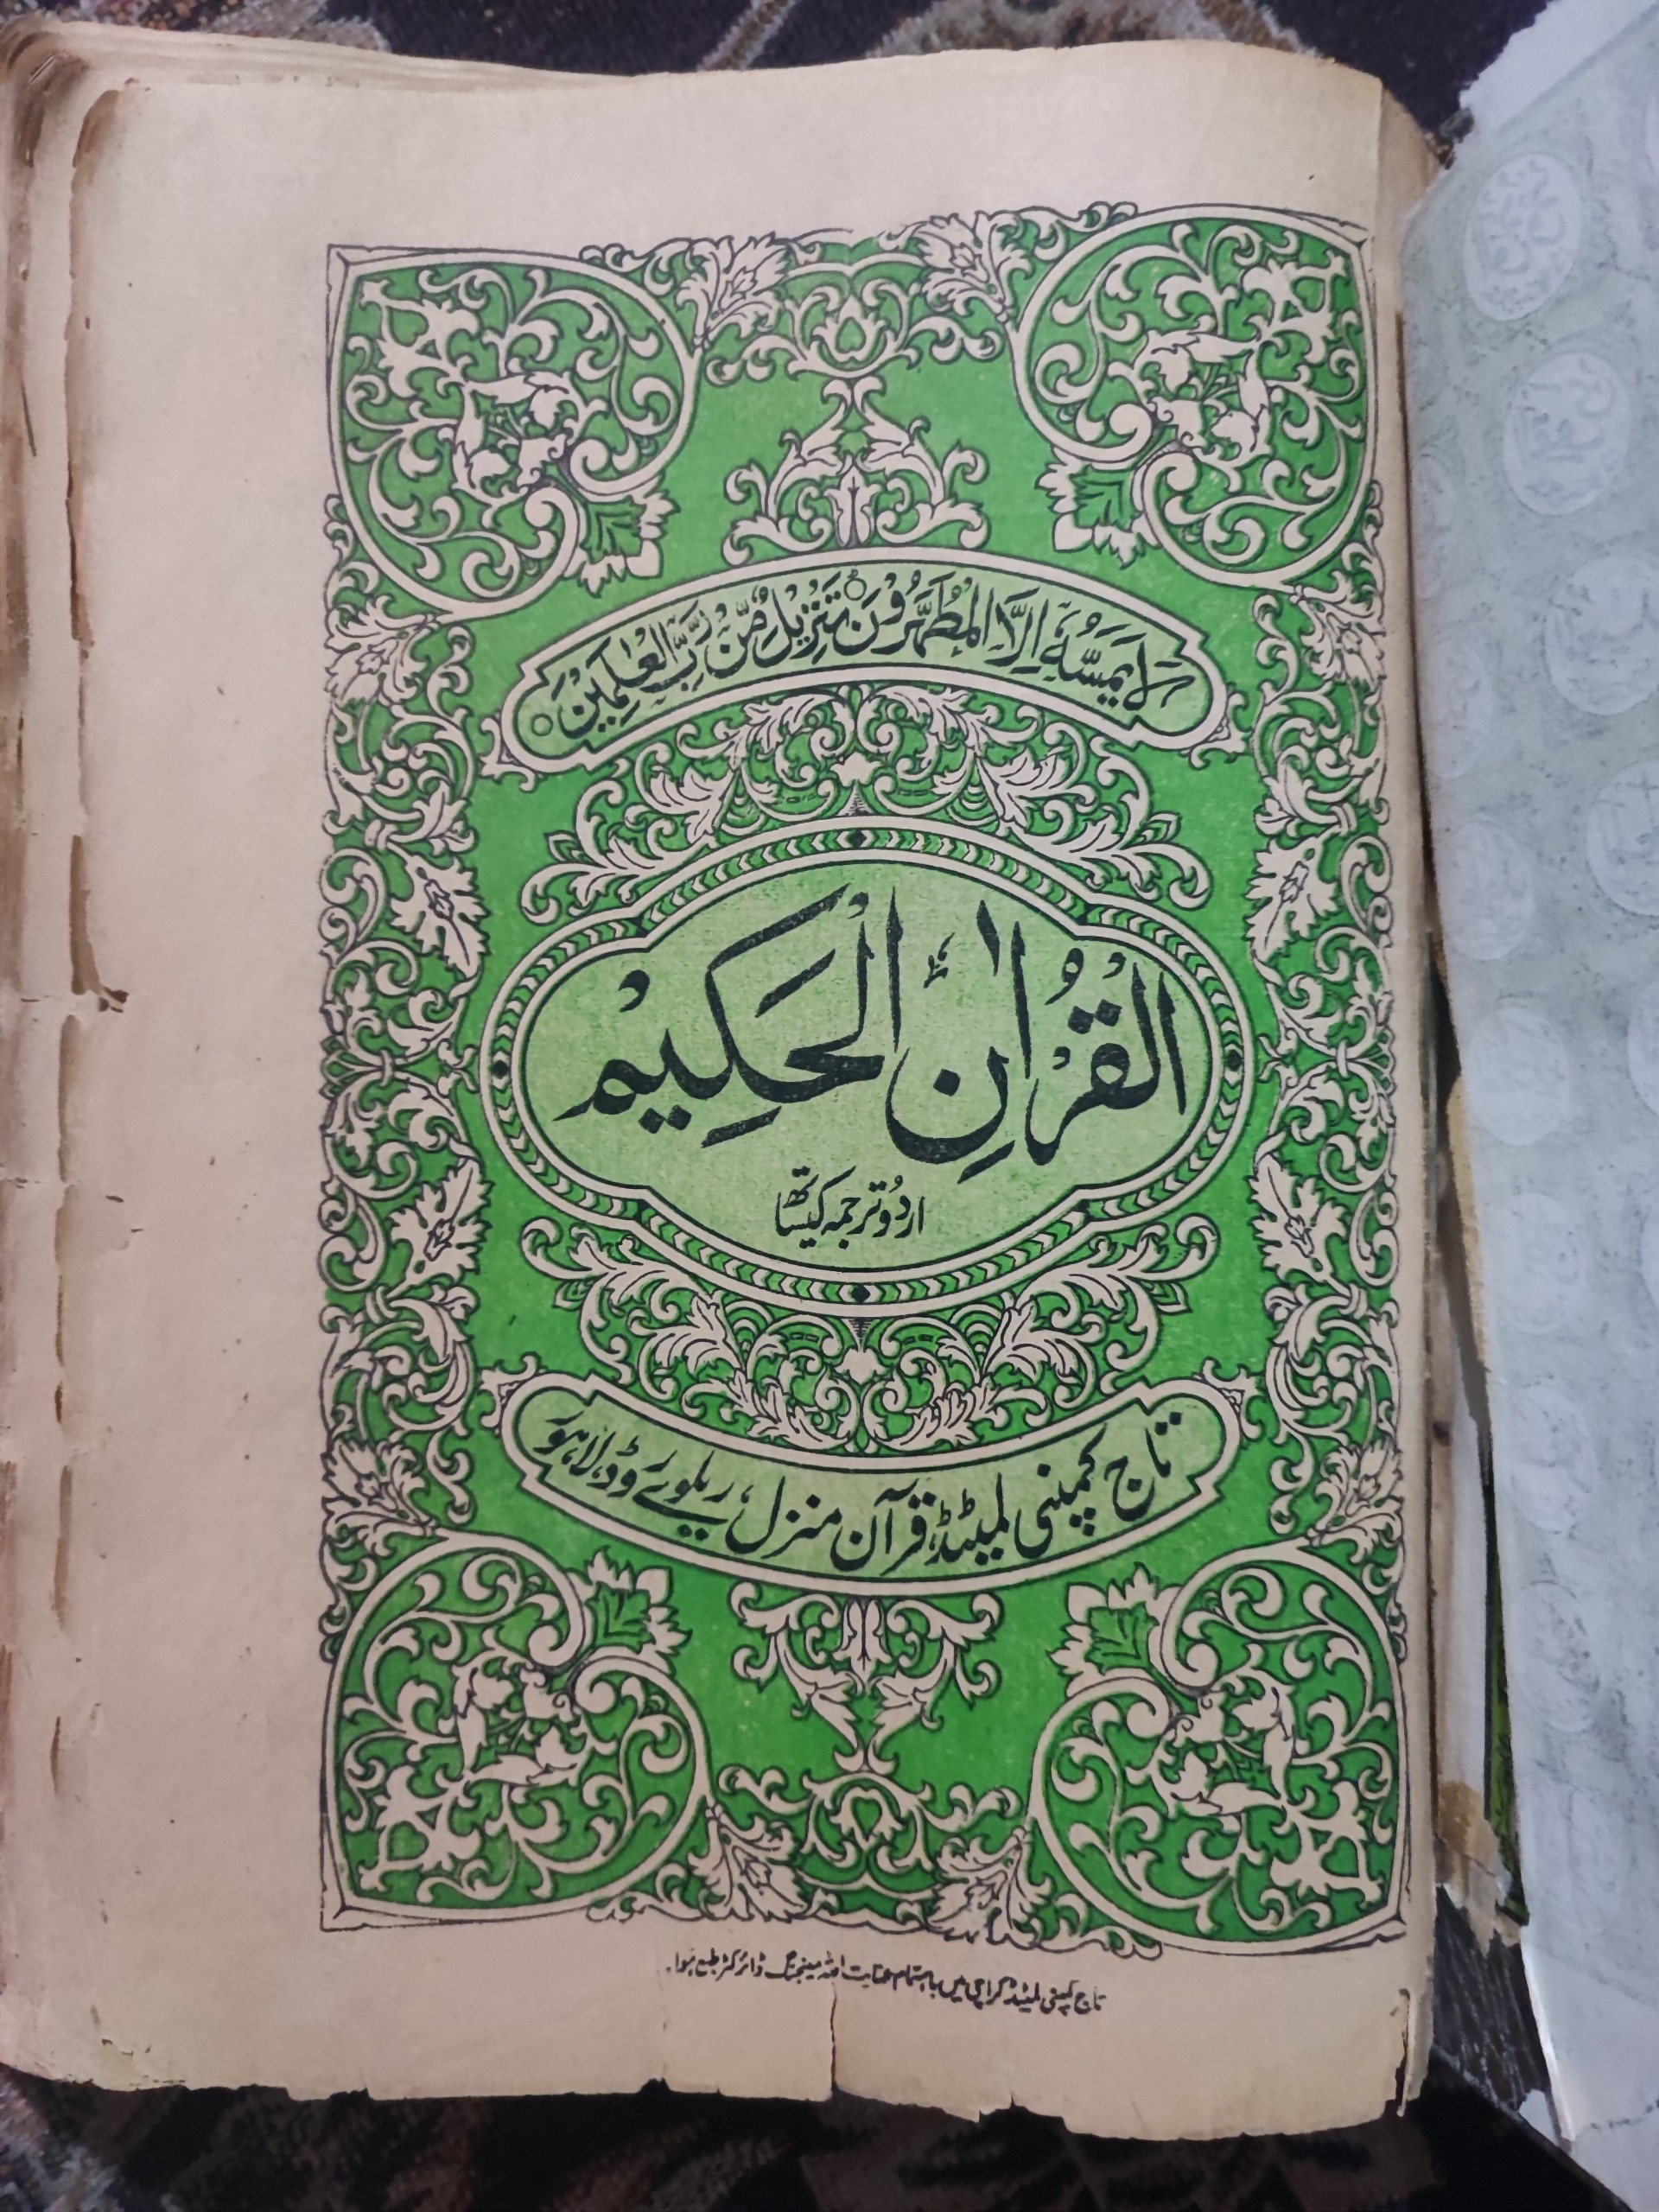 لَا يَمَسُّهٗٓ اِلَّا الْمُطَهَّرُوْنَ ؕ تَنْزِيْلٌ مِّنْ رَّبِّ الْعٰلَمِيْنَ
الْقُرْاٰنِ الْحَكِيْمِ
اردُو ترجمہ کیساتھ
تاج کمپنی لمیٹڈ، قرآن منزل، ریلوے روڈ، لاہو
تاج کمپنی لمیٹڈ کراچی میں باہتمام عنایت اللہ مینجنگ ڈائرکٹر طبع ہوا۔